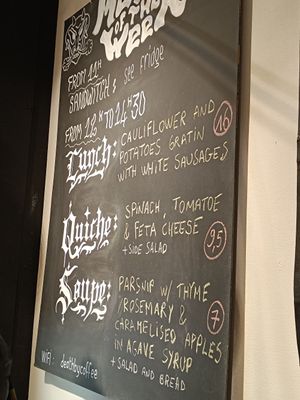 Menu
of the
Week
FROM 11H
SANDWITCH: see fridge
FROM 12H TO 14H30
Lunch: CAULIFLOWER AND
POTATOES GRATIN
WITH WHITE SAUSAGES
16
Quiche: SPINACH, TOMATOE
& FETA CHEESE
+ SIDE SALAD
9,5
Soupe: PARSNIP W/ THYME
/ROSEMARY &
CARAMELISED APPLES
IN AGAVE SYRUP
+ SALAD AND BREAD
7
WIFI: deathbycoffee